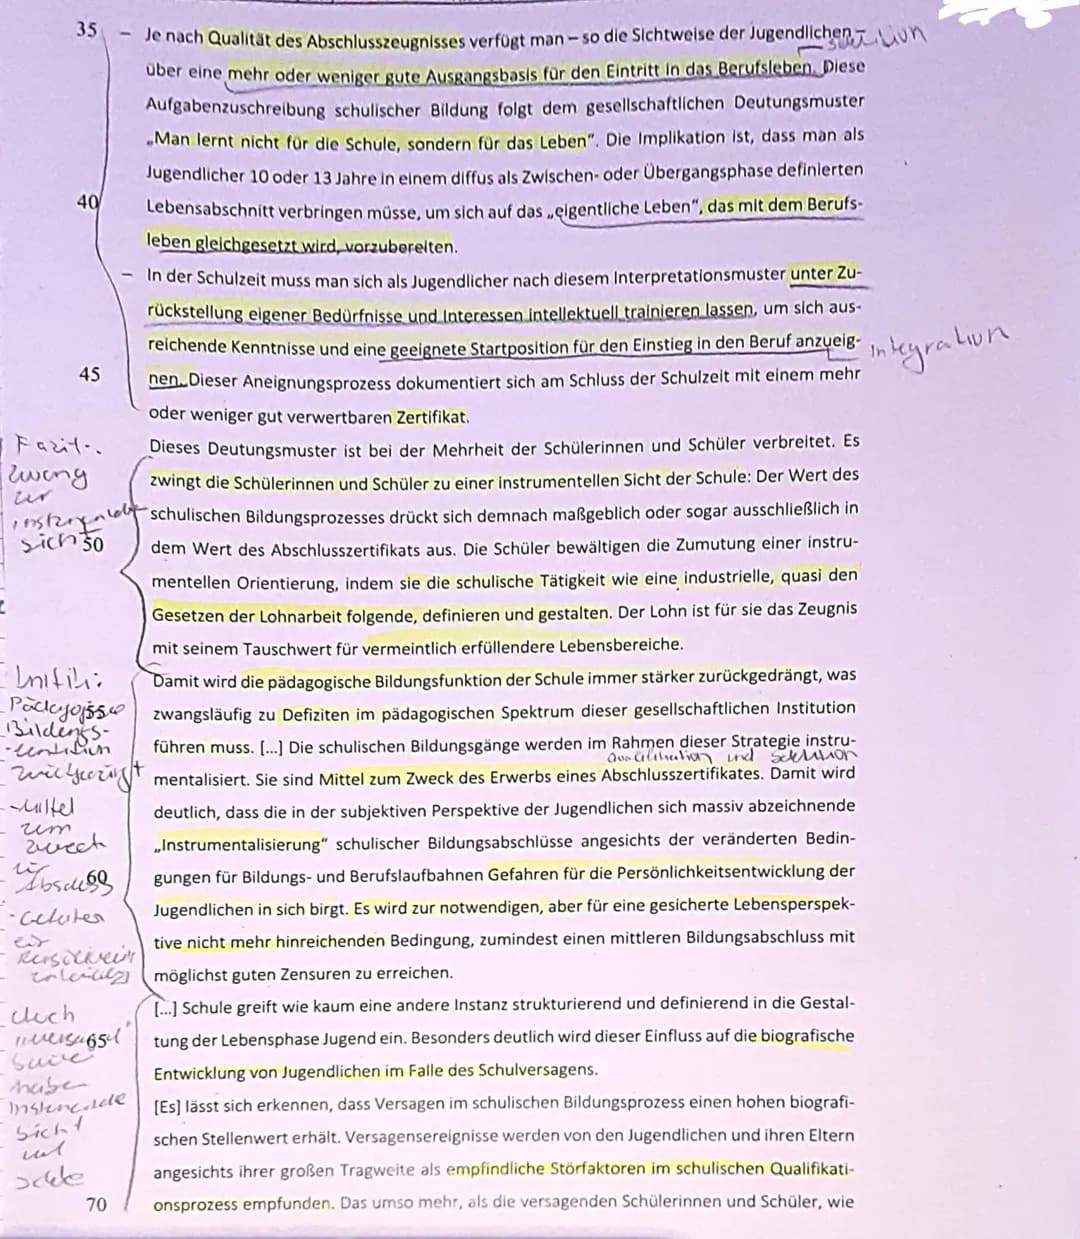 35 – Je nach Qualität des Abschlusszeugnisses verfügt man – so die Sichtweise der Jugendlichen –
über eine mehr oder weniger gute Ausgangsbasis für den Eintritt in das Berufsleben. Diese
Aufgabenzuschreibung schulischer Bildung folgt dem gesellschaftlichen Deutungsmuster
„Man lernt nicht für die Schule, sondern für das Leben“. Die Implikation ist, dass man als
Jugendlicher 10 oder 13 Jahre in einem diffus als Zwischen- oder Übergangsphase definierten
40 Lebensabschnitt verbringen müsse, um sich auf das „eigentliche Leben“, das mit dem Berufs-
leben gleichgesetzt wird, vorzubereiten.
– In der Schulzeit muss man sich als Jugendlicher nach diesem Interpretationsmuster unter Zu-
rückstellung eigener Bedürfnisse und Interessen intellektuell trainieren lassen, um sich aus-
reichende Kenntnisse und eine geeignete Startposition für den Einstieg in den Beruf anzueig-
Integration
45 nen. Dieser Aneignungsprozess dokumentiert sich am Schluss der Schulzeit mit einem mehr
oder weniger gut verwertbaren Zertifikat.
Fazit:
Dieses Deutungsmuster ist bei der Mehrheit der Schülerinnen und Schüler verbreitet. Es
Zwang
zwingt die Schülerinnen und Schüler zu einer instrumentellen Sicht der Schule: Der Wert des
zur
schulischen Bildungsprozesses drückt sich demnach maßgeblich oder sogar ausschließlich in
Sicht
50 dem Wert des Abschlusszertifikats aus. Die Schüler bewältigen die Zumutung einer instru-
mentellen Orientierung, indem sie die schulische Tätigkeit wie eine industrielle, quasi den
Gesetzen der Lohnarbeit folgende, definieren und gestalten. Der Lohn ist für sie das Zeugnis
mit seinem Tauschwert für vermeintlich erfüllendere Lebensbereiche.
Damit wird die pädagogische Bildungsfunktion der Schule immer stärker zurückgedrängt, was
55 zwangsläufig zu Defiziten im pädagogischen Spektrum dieser gesellschaftlichen Institution
Bildungs-
führen muss. [...] Die schulischen Bildungsgänge werden im Rahmen dieser Strategie instru-
Qualifikation und Selektion
mentalisiert. Sie sind Mittel zum Zweck des Erwerbs eines Abschlusszertifikates. Damit wird
- Mittel
deutlich, dass die in der subjektiven Perspektive der Jugendlichen sich massiv abzeichnende
zum
Zweck
„Instrumentalisierung“ schulischer Bildungsabschlüsse angesichts der veränderten Bedin-
60 gungen für Bildungs- und Berufslaufbahnen Gefahren für die Persönlichkeitsentwicklung der
Jugendlichen in sich birgt. Es wird zur notwendigen, aber für eine gesicherte Lebensperspek-
tive nicht mehr hinreichenden Bedingung, zumindest einen mittleren Bildungsabschluss mit
möglichst guten Zensuren zu erreichen.
[...] Schule greift wie kaum eine andere Instanz strukturierend und definierend in die Gestal-
65 tung der Lebensphase Jugend ein. Besonders deutlich wird dieser Einfluss auf die biografische
Entwicklung von Jugendlichen im Falle des Schulversagens.
haben
[Es] lässt sich erkennen, dass Versagen im schulischen Bildungsprozess einen hohen biografi-
Sicht
schen Stellenwert erhält. Versagensereignisse werden von den Jugendlichen und ihren Eltern
angesichts ihrer großen Tragweite als empfindliche Störfaktoren im schulischen Qualifikati-
70 onsprozess empfunden. Das umso mehr, als die versagenden Schülerinnen und Schüler, wie